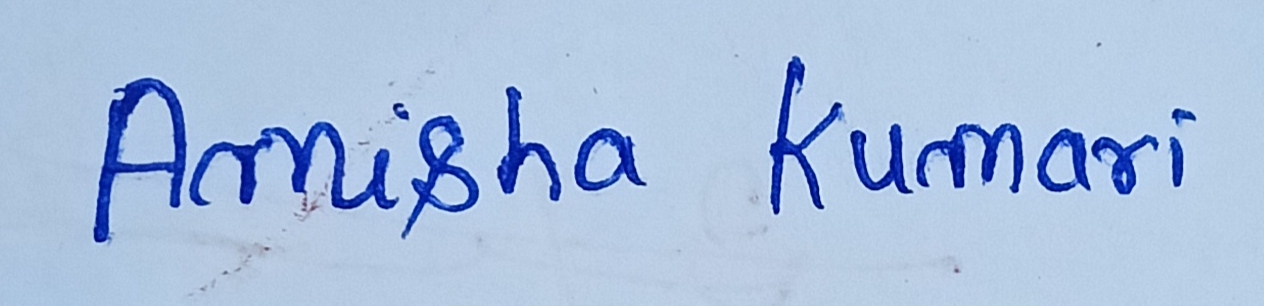 Amisha Kumari